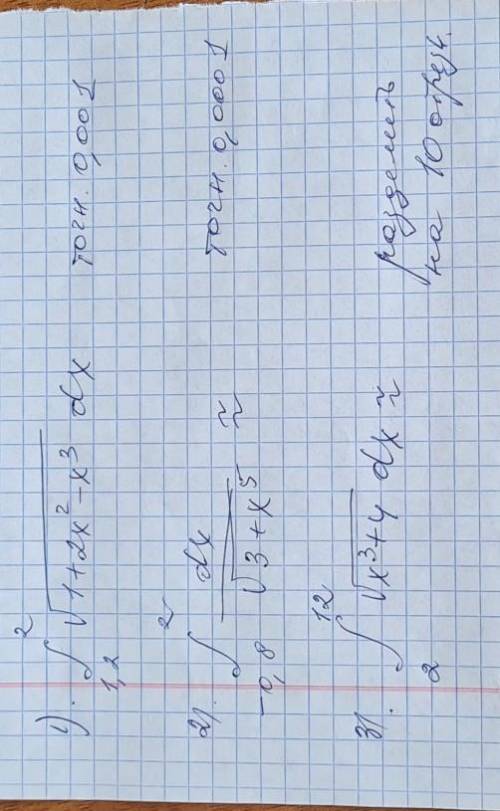 1). ∫_{1,2}^{2} √(1+2x²-x³) dx точн. 0,001
2). ∫_{-0,8}^{2} dx/√(3+x⁵) ≈ точн. 0,0001
3). ∫_{2}^{12} √(x³+4) dx ≈ разделить
на 10 отрезк.